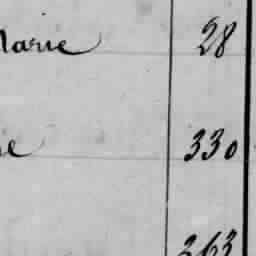 Marie 28
330
263